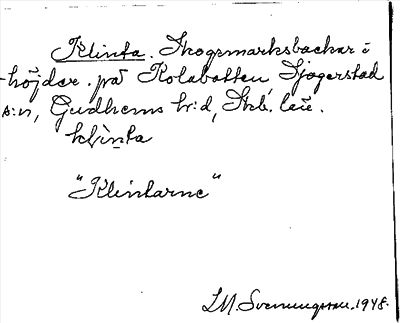 Klinta. Skogsmarksbackar i
-höjder. på Kolabotten, Sjogerstad
s:n, Gudhems hr:d, Skb. län.
klinta
"Klintarne"
I.M. Svenungsson. 1948.